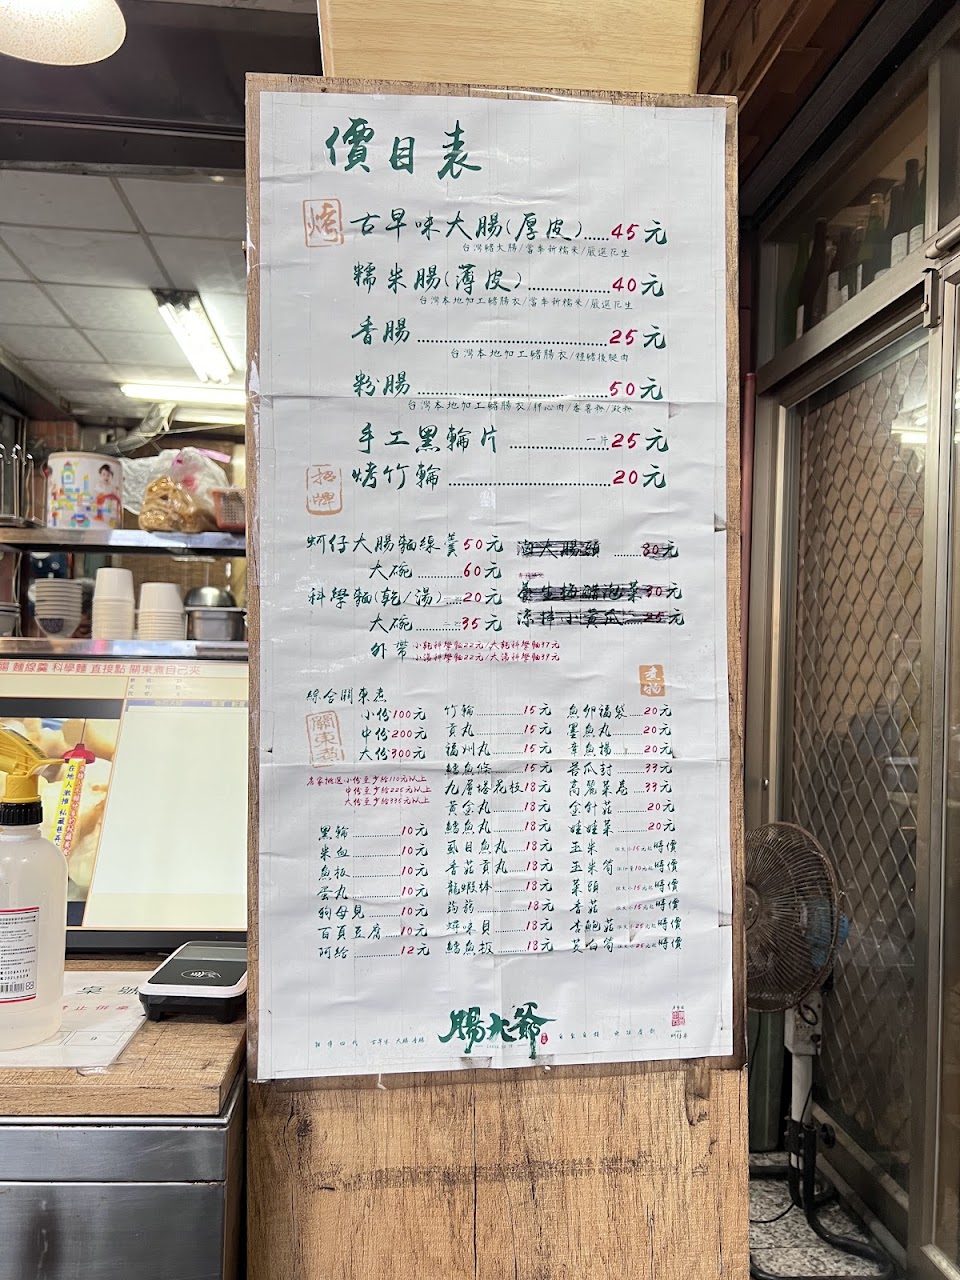 價目表
烤
古早味大腸(厚皮)......45元
台灣豬大腸/當季新糯米/嚴選花生
糯米腸(薄皮)......40元
台灣本地加工豬腸衣/當季新糯米/嚴選花生
香腸......25元
台灣本地加工豬腸衣/豬後腿肉
粉腸......50元
手工黑輪片......一片25元
招牌
烤竹輪......20元
蚵仔大腸麵線羹50元
大碗......60元
科學麵(乾/湯)......20元
大碗......35元
外帶 小乾科學麵22元/大乾科學麵37元
小湯科學麵22元/大湯科學麵39元
滷大腸頭......80元
養生梅醋泡菜30元
涼拌小黃瓜......25元
綜合關東煮
關東煮
小份100元
中份200元
大份300元
店家挑選小份至少給110元以上
中份至少給225元以上
大份至少給335元以上
黑輪......10元
米血......10元
魚板......10元
蛋丸......10元
狗母見......10元
百頁豆腐......10元
阿給......12元
竹輪......15元
貢丸......15元
福州丸......15元
鱈魚條......15元
九層塔花枝18元
黃金丸......18元
鱈魚丸......18元
虱目魚丸......18元
香菇貢丸......18元
龍蝦棒......18元
蒟蒻......18元
蟳味貝......18元
鱈魚板......18元
魚卵福袋......20元
墨魚丸......20元
章魚揚......20元
苦瓜封......33元
高麗菜卷......33元
金針菇......20元
娃娃菜......20元
玉米 依大小15元起時價
玉米筍 10元起時價
菜頭 依大小15元起時價
香菇 依大小15元起時價
杏鮑菇 依大小25元起時價
茭白筍 依大小25元起時價
腸大爺
麵線羹 科學麵 直接點 關東煮自己夾
桌號